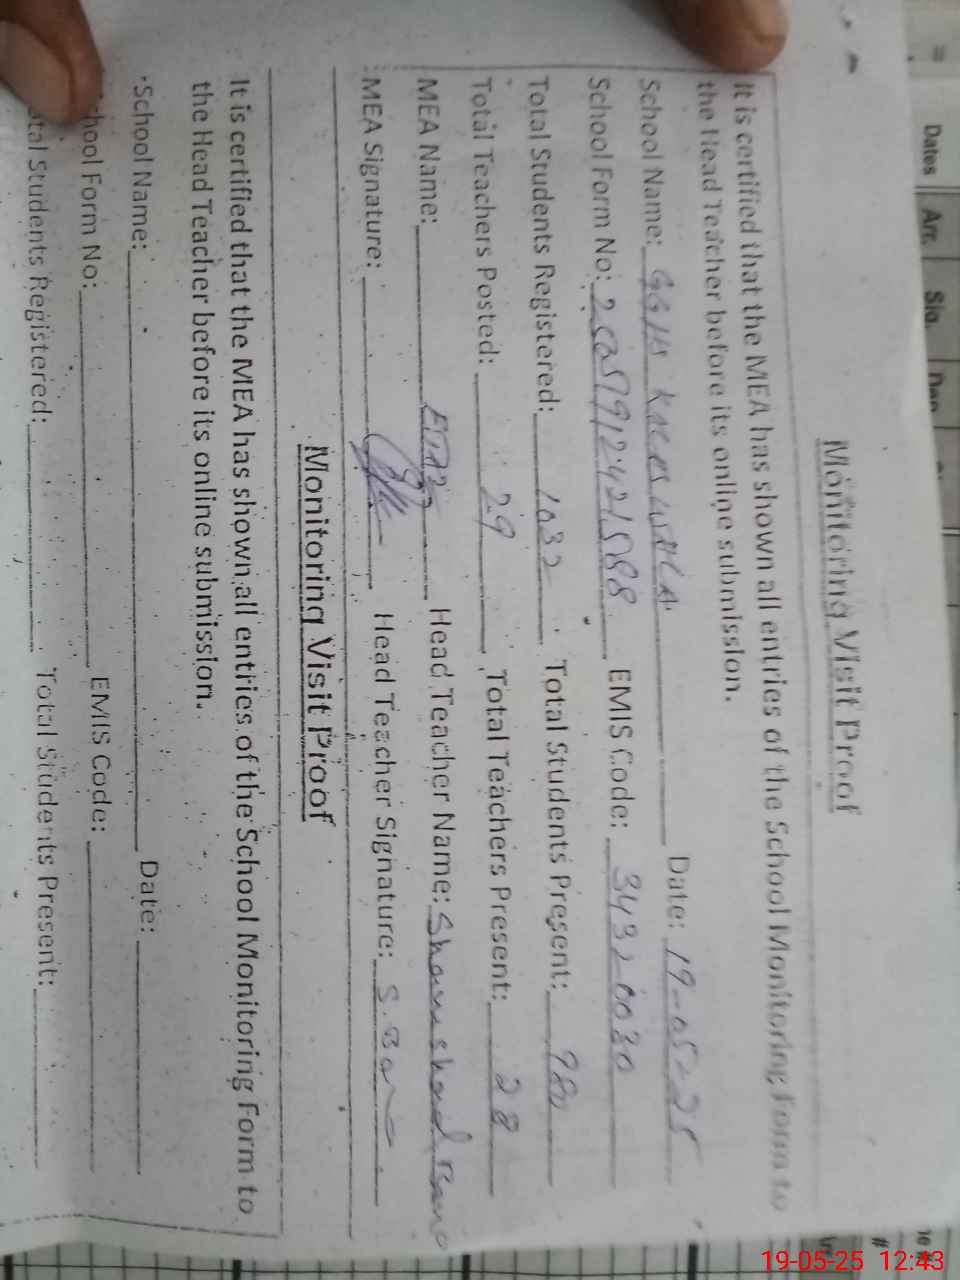 Dates Arr. Sig. Dep.
Monitoring Visit Proof
It is certified that the MEA has shown all entries of the School Monitoring Form to
the Head Teacher before its online submission.
School Name: GGHS Date: 19-05-25
School Form No: EMIS Code: 34320030
Total Students Registered: 1032 Total Students Present:
Total Teachers Posted: 29 Total Teachers Present: 28
MEA Name: Head Teacher Name: Shamshad Bano
MEA Signature: Head Teacher Signature: S. Bano
Monitoring Visit Proof
It is certified that the MEA has shown all entries of the School Monitoring Form to
the Head Teacher before its online submission.
School Name: Date:
hool Form No: EMIS Code:
tal Students Registered: Total Students Present:
19-05-25 12:43